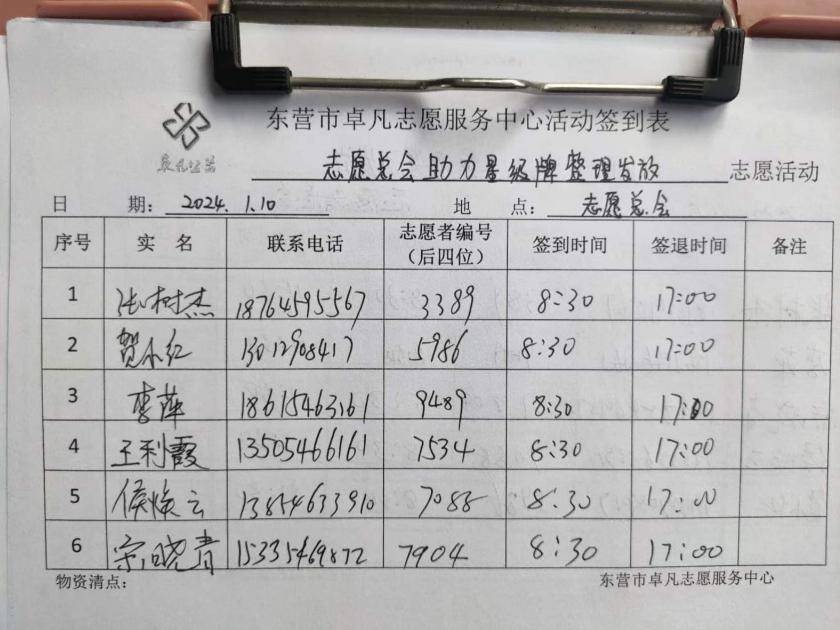 东营市卓凡志愿服务中心活动签到表
志愿总会助力星级牌整理发放 志愿活动
日 期: 2024.1.10 地 点: 志愿总会
序号 实 名 联系电话 志愿者编号(后四位) 签到时间 签退时间 备注
1 张树杰 18764595567 3389 8:30 17:00
2 贺小红 13012908417 5986 8:30 17:00
3 李萍 18615463161 9489 8:30 17:00
4 王利霞 13505466161 7534 8:30 17:00
5 侯焕云 13854633910 7088 8:30 17:00
6 宗晓青 15335469872 7904 8:30 17:00
物资清点: 东营市卓凡志愿服务中心